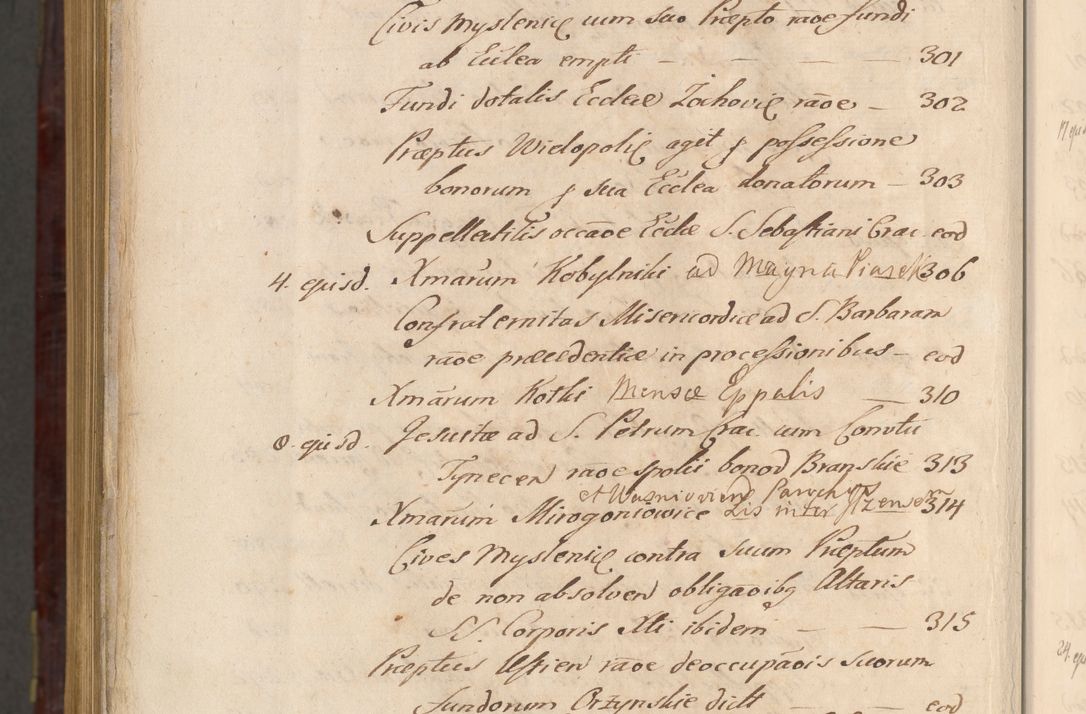 Civis Myslenic̃ cum suo Præpto rãoe fundi
ab Ecclea empti — — — — 301
Fundi dotalis Eccleæ Zochovic̃ rãoe — 302
Præptus Widopolic̃ aget ꝑ possessione
bonorum ꝑ sua Ecclea donatorum — 303
Suppellectilis occãoe Eccleæ S. Sebastiani Crac. eod
4. ejusd. Xmãrum Kobylniki ad Magna Piasek 306
Confraternitas Misericordiæ ad S. Barbaram
rãoe præcedentiæ in processionibus — eod
Xmãrum Kotki Mensæ Eppalis — 310
8. ejusd. Jesuitæ ad S. Petrum Crac. cum Convtu
Tynecen rãoe spolii bonor Branskie 313
et Wasniovien Parochos
Xmãrum Mirogoniowice Lis inter 314
Cives Myslenic̃ contra suum Præptum
de non absolven obligãoibꝫ Altaris
SS. Corporis Xti ibidem — — 315
Præptus Ujsien rãoe deoccupãois suorum
fundorum Orzynskie dict — eod
17 eju
24. eju